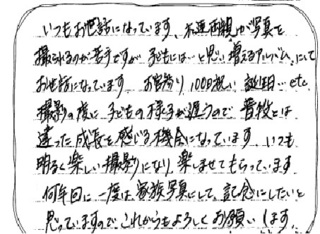 いつもお世話になっています。私達両親が写真を
撮られるのが苦手ですが子どもには…と思い増えるアルバムにて
お世話になっています。お宮参り 100日祝い 誕生日…etc.
撮影の度に子どもの様子が違うので普段とは
違った成長を感じる機会になっています。いつも
明るく楽しい撮影になり、楽しませてもらっています
何年回に一度は家族写真にして、記念にしたいと
思っていますのでこれからもよろしくお願いします。